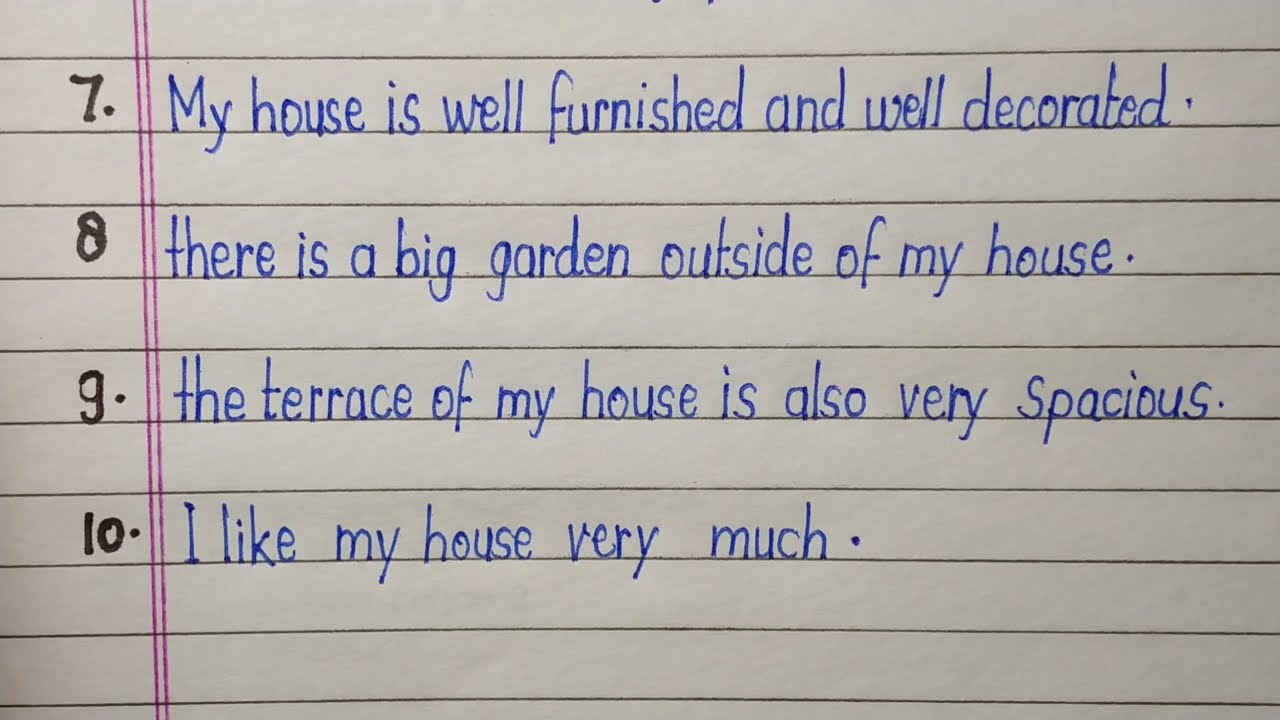 7. My house is well furnished and well decorated.
8 there is a big garden outside of my house.
9. the terrace of my house is also very Spacious.
10. I like my house very much.